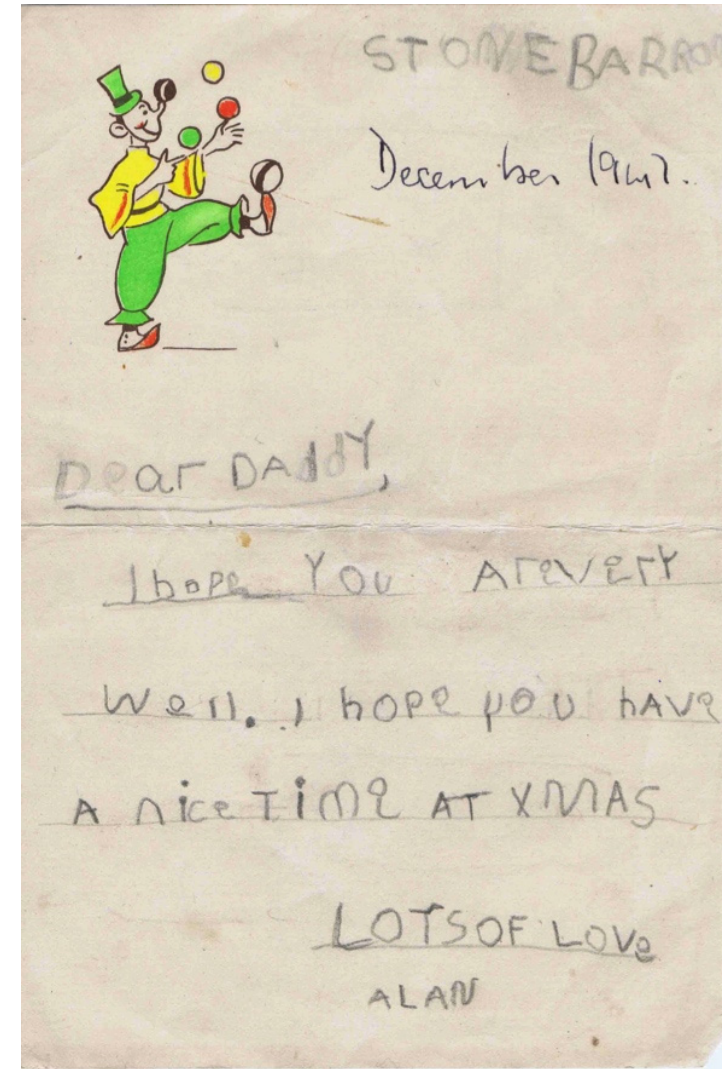 STONEBARRO
December 1947.
Dear DAddY,
I hope You Are very
Well. I hope you hAve
A nice Time AT XMAS
LOTS OF LOVe
ALAN